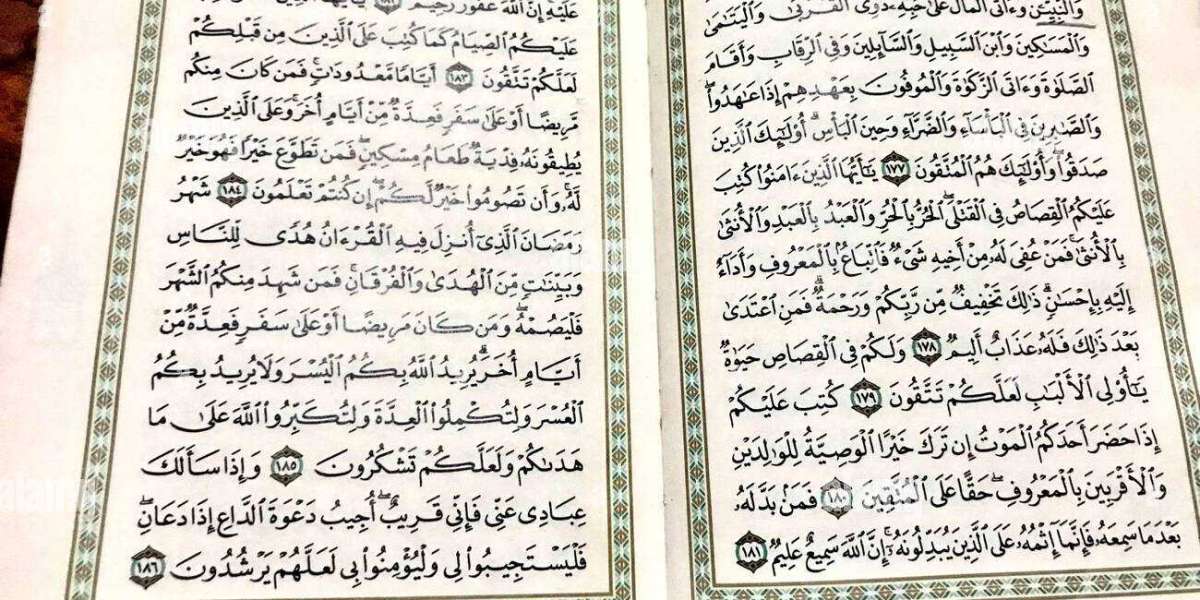 وَالنَّبِيِّـۧنَ وَءَاتَى الْمَالَ عَلَىٰ حُبِّهِۦ ذَوِى الْقُرْبَىٰ وَالْيَتَٰمَىٰ
وَالْمَسَٰكِينَ وَابْنَ السَّبِيلِ وَالسَّآئِلِينَ وَفِى الرِّقَابِ وَأَقَامَ
الصَّلَوٰةَ وَءَاتَى الزَّكَوٰةَ وَالْمُوفُونَ بِعَهْدِهِمْ إِذَا عَٰهَدُوا۟
وَالصَّٰبِرِينَ فِى الْبَأْسَآءِ وَالضَّرَّآءِ وَحِينَ الْبَأْسِ أُو۟لَٰٓئِكَ الَّذِينَ
صَدَقُوا۟ وَأُو۟لَٰٓئِكَ هُمُ الْمُتَّقُونَ ١٧٧ يَٰٓأَيُّهَا الَّذِينَ ءَامَنُوا۟ كُتِبَ
عَلَيْكُمُ الْقِصَاصُ فِى الْقَتْلَى الْحُرُّ بِالْحُرِّ وَالْعَبْدُ بِالْعَبْدِ وَالْأُنثَىٰ
بِالْأُنثَىٰ فَمَنْ عُفِىَ لَهُۥ مِنْ أَخِيهِ شَىْءٌ فَاتِّبَاعٌۢ بِالْمَعْرُوفِ وَأَدَآءٌ
إِلَيْهِ بِإِحْسَٰنٍ ذَٰلِكَ تَخْفِيفٌ مِّن رَّبِّكُمْ وَرَحْمَةٌ فَمَنِ اعْتَدَىٰ
بَعْدَ ذَٰلِكَ فَلَهُۥ عَذَابٌ أَلِيمٌ ١٧٨ وَلَكُمْ فِى الْقِصَاصِ حَيَوٰةٌ
يَٰٓأُو۟لِى الْأَلْبَٰبِ لَعَلَّكُمْ تَتَّقُونَ ١٧٩ كُتِبَ عَلَيْكُمْ
إِذَا حَضَرَ أَحَدَكُمُ الْمَوْتُ إِن تَرَكَ خَيْرًا الْوَصِيَّةُ لِلْوَٰلِدَيْنِ
وَالْأَقْرَبِينَ بِالْمَعْرُوفِ حَقًّا عَلَى الْمُتَّقِينَ ١٨٠ فَمَنۢ بَدَّلَهُۥ
بَعْدَمَا سَمِعَهُۥ فَإِنَّمَآ إِثْمُهُۥ عَلَى الَّذِينَ يُبَدِّلُونَهُۥٓ إِنَّ اللَّهَ سَمِيعٌ عَلِيمٌ ١٨١
عَلَيْهِ إِنَّ اللَّهَ غَفُورٌ رَّحِيمٌ
عَلَيْكُمُ الصِّيَامُ كَمَا كُتِبَ عَلَى الَّذِينَ مِن قَبْلِكُمْ
لَعَلَّكُمْ تَتَّقُونَ ١٨٣ أَيَّامًا مَّعْدُودَٰتٍ فَمَن كَانَ مِنكُم
مَّرِيضًا أَوْ عَلَىٰ سَفَرٍ فَعِدَّةٌ مِّنْ أَيَّامٍ أُخَرَ وَعَلَى الَّذِينَ
يُطِيقُونَهُۥ فِدْيَةٌ طَعَامُ مِسْكِينٍ فَمَن تَطَوَّعَ خَيْرًا فَهُوَ خَيْرٌ
لَّهُۥ وَأَن تَصُومُوا۟ خَيْرٌ لَّكُمْ إِن كُنتُمْ تَعْلَمُونَ ١٨٤ شَهْرُ
رَمَضَانَ الَّذِىٓ أُنزِلَ فِيهِ الْقُرْءَانُ هُدًى لِّلنَّاسِ
وَبَيِّنَٰتٍ مِّنَ الْهُدَىٰ وَالْفُرْقَانِ فَمَن شَهِدَ مِنكُمُ الشَّهْرَ
فَلْيَصُمْهُ وَمَن كَانَ مَرِيضًا أَوْ عَلَىٰ سَفَرٍ فَعِدَّةٌ مِّنْ
أَيَّامٍ أُخَرَ يُرِيدُ اللَّهُ بِكُمُ الْيُسْرَ وَلَا يُرِيدُ بِكُمُ
الْعُسْرَ وَلِتُكْمِلُوا۟ الْعِدَّةَ وَلِتُكَبِّرُوا۟ اللَّهَ عَلَىٰ مَا
هَدَىٰكُمْ وَلَعَلَّكُمْ تَشْكُرُونَ ١٨٥ وَإِذَا سَأَلَكَ
عِبَادِى عَنِّى فَإِنِّى قَرِيبٌ أُجِيبُ دَعْوَةَ الدَّاعِ إِذَا دَعَانِ
فَلْيَسْتَجِيبُوا۟ لِى وَلْيُؤْمِنُوا۟ بِى لَعَلَّهُمْ يَرْشُدُونَ ١٨٦